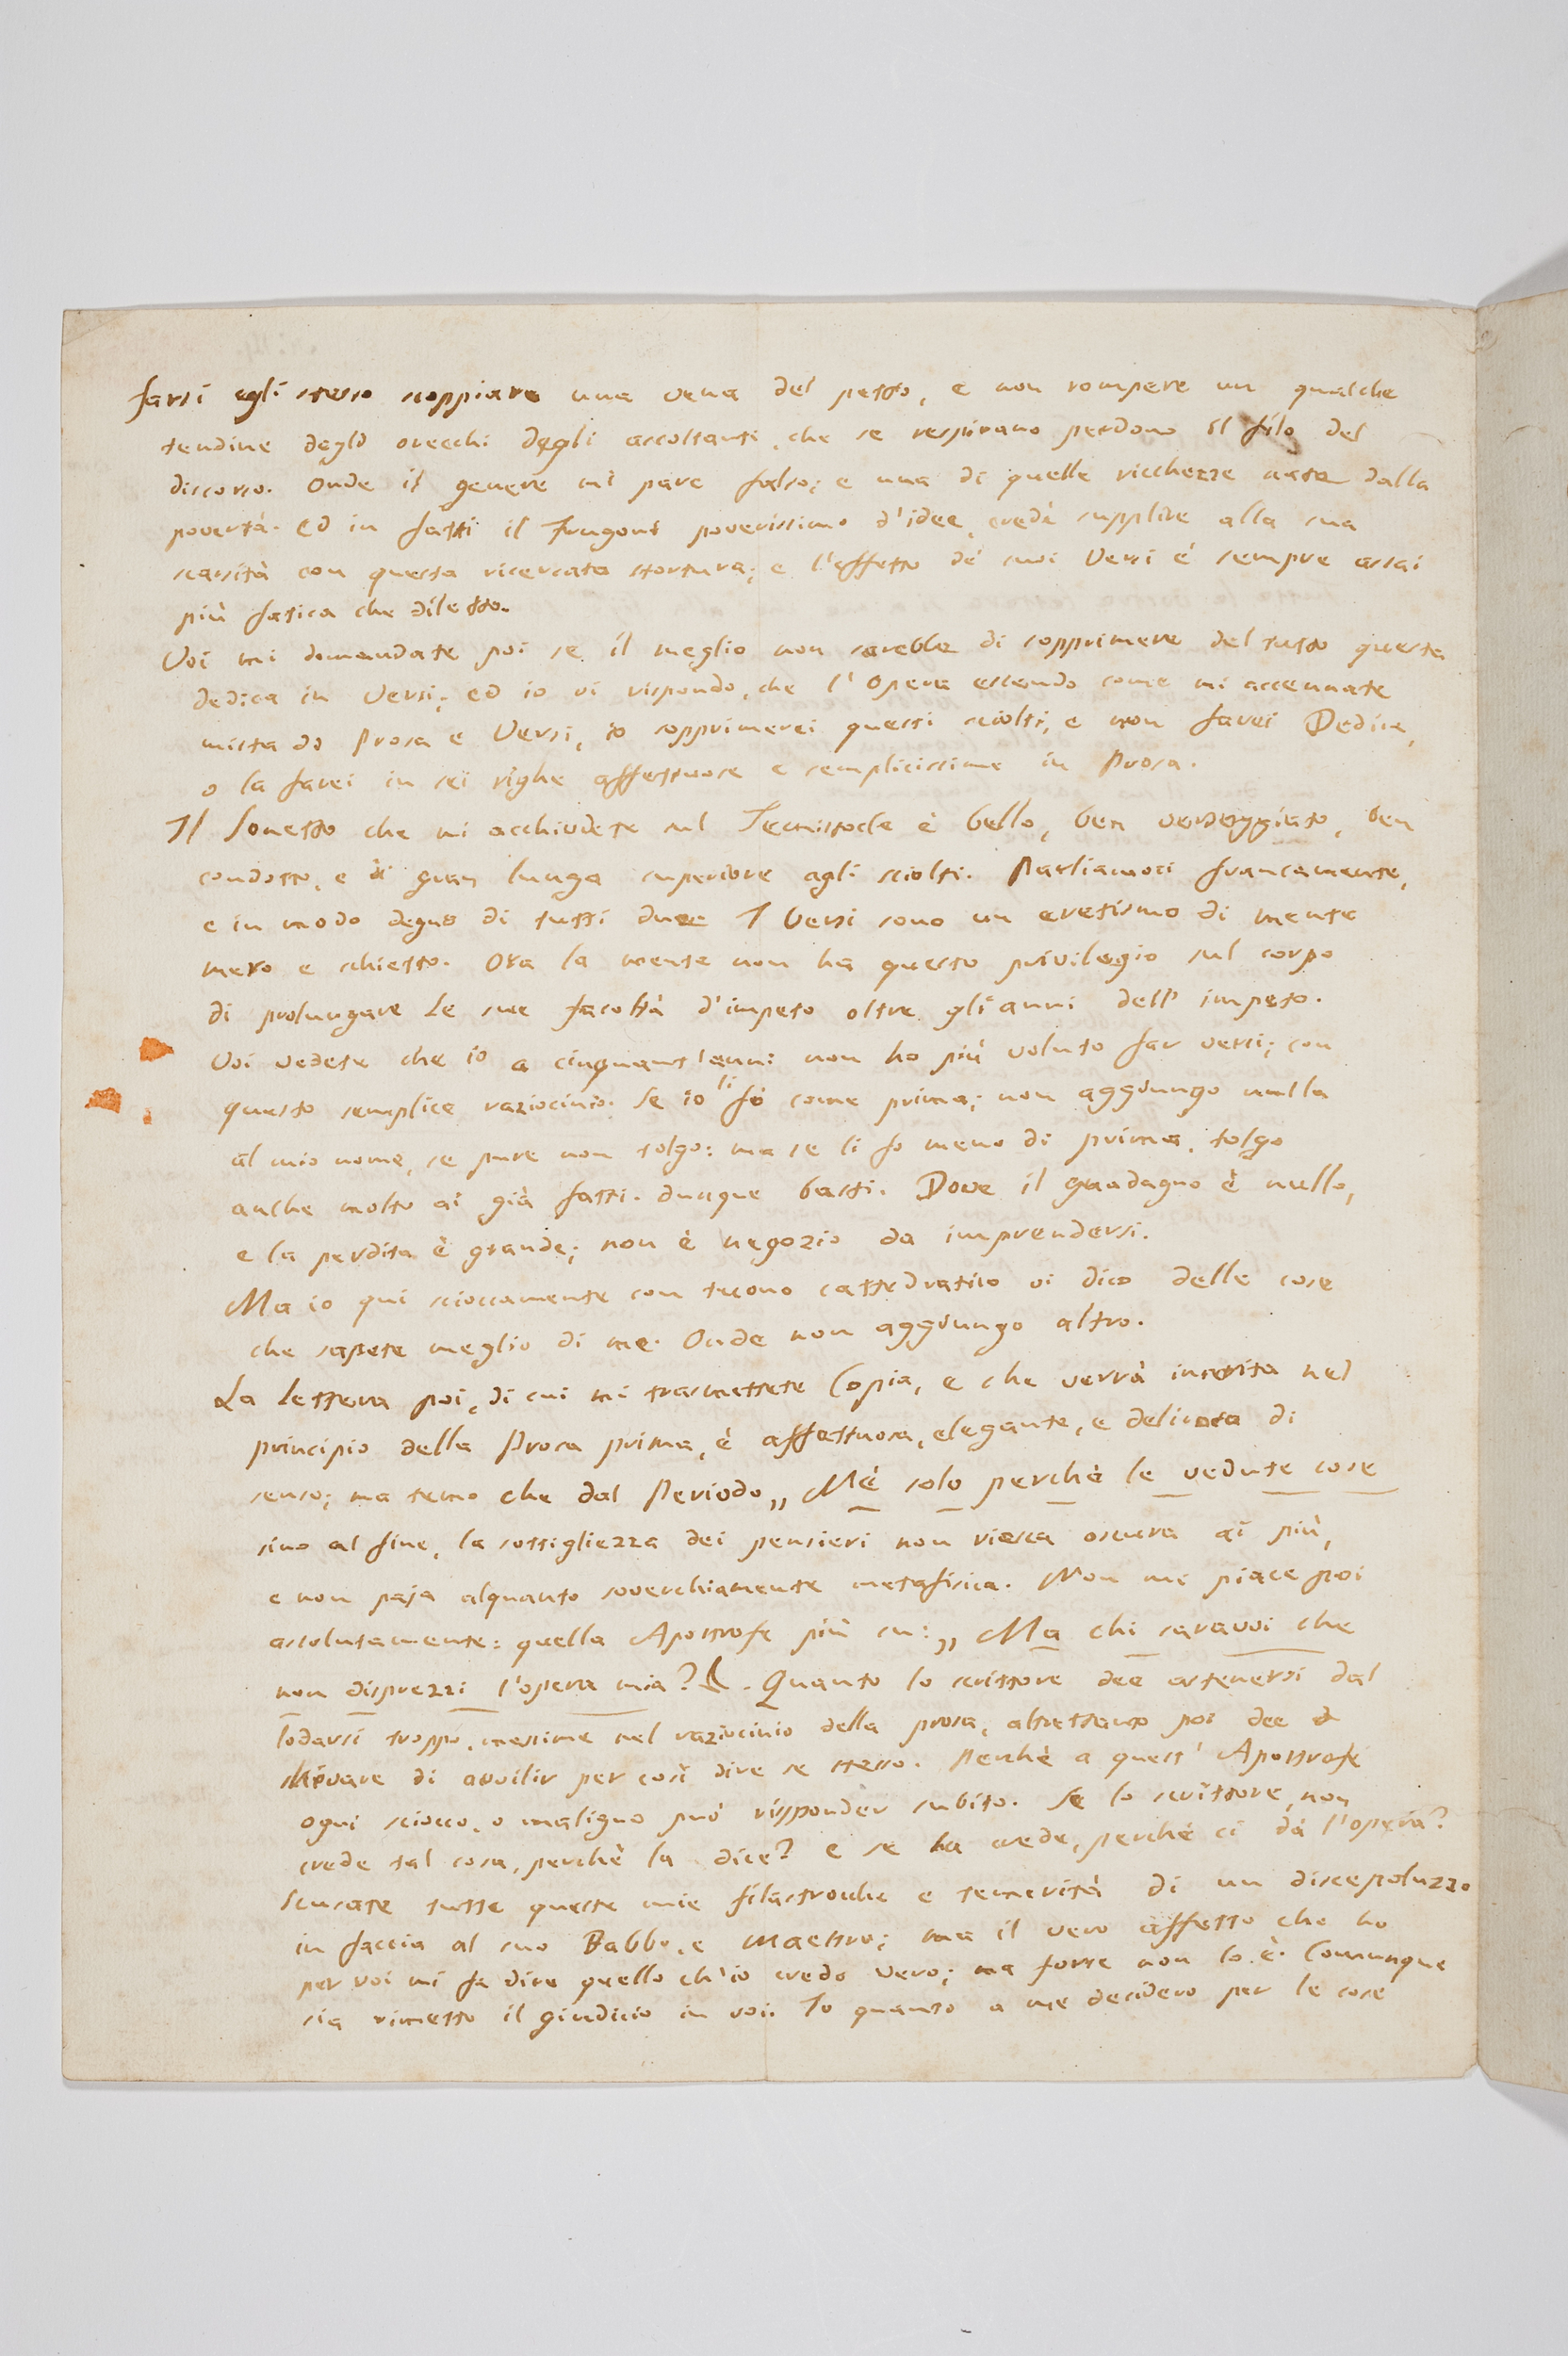 farsi egli stesso scoppiare una vena del petto, e non rompere un qualche
tendine degli orecchi degli ascoltanti, che se respirano perdono il filo del
discorso. Onde il genere mi pare falso; e una di quelle ricchezze nata dalla
povertà. Ed in fatti il Frugoni poverissimo d'idee, credè supplire alla sua
scarsità con questa ricercata stortura; e l'effetto de' suoi Versi è sempre assai
più fatica che diletto.
Voi mi domandate poi se il meglio non sarebbe di sopprimere del tutto questa
dedica in Versi; ed io vi rispondo, che l'Opera essendo come mi accennate
mista di Prosa e Versi, io sopprimerei questi sciolti, e non farei Dedica,
o la farei in sei righe affettuose e semplicissime in Prosa.
Il Sonetto che mi acchiudete sul Temistocle è bello, ben verseggiato, ben
condotto, e di gran lunga superiore agli sciolti. Parliamoci francamente,
e in modo degno di tutti due I Versi sono un eretismo di mente
mero e schietto. Ora la mente non ha questo privilegio sul corpo
di prolungare le sue facoltà d'impeto oltre gli anni dell'impeto.
Voi vedete che io a cinquant'anni non ho più voluto far versi; con
questo semplice raziocinio. Se io li fo come prima; non aggiungo nulla
al mio nome, se pure non tolgo: ma se li fo meno di prima, tolgo
anche molto ai già fatti. dunque basti. Dove il guadagno è nullo,
e la perdita è grande; non è negozio da imprendersi.
Ma io qui scioccamente con tuono cattedratico vi dico delle cose
che sapete meglio di me. Onde non aggiungo altro.
La lettera poi, di cui mi trasmettete Copia, e che verrà inserita nel
principio della Prosa prima, è affettuosa, elegante, e delicata di
senso; ma temo che dal Periodo „ Nè solo perchè le vedute cose
sino al fine, la sottigliezza dei pensieri non riesca oscura ai più,
e non paja alquanto soverchiamente metafisica. Non mi piace poi
assolutamente: quella Apostrofe più su: „ Ma chi saravvi che
non disprezzi l'opera mia? . Quanto lo scrittore dee astenersi dal
lodarsi troppo, massime nel raziocinio della prosa, altrettanto poi dee
schivare di avvilir per così dire se stesso. Perchè a quest'Apostrofe
ogni sciocco, o maligno può risponder subito. Se lo scrittore, non
crede tal cosa, perchè la dice? e se la crede, perchè ci dà l'opera?
Scusate tutte queste mie filastrocche e temerità di un discepoluzzo
in faccia al suo Babbo, e maestro; ma il vero affetto che ho
per voi mi fa dire quello ch'io credo vero; ma forse non lo è. Comunque
sia rimetto il giudicio in voi. Io quanto a me desidero per le cose